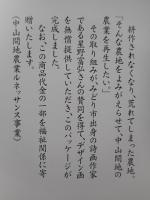 耕作されなくなり、荒れてしまった農地。
「そんな農地をよみがえらせて、中山間地の
農業を再生したい。」
その取り組みがみどり市出身の詩画作家
である星野富弘さんの賛同を得て、デザイン画
を無償提供していただき、このパッケージが
完成しました。
なお、この商品売上金の一部を福祉関係に寄
贈いたします。
(中山間地農業ルネッサンス事業)